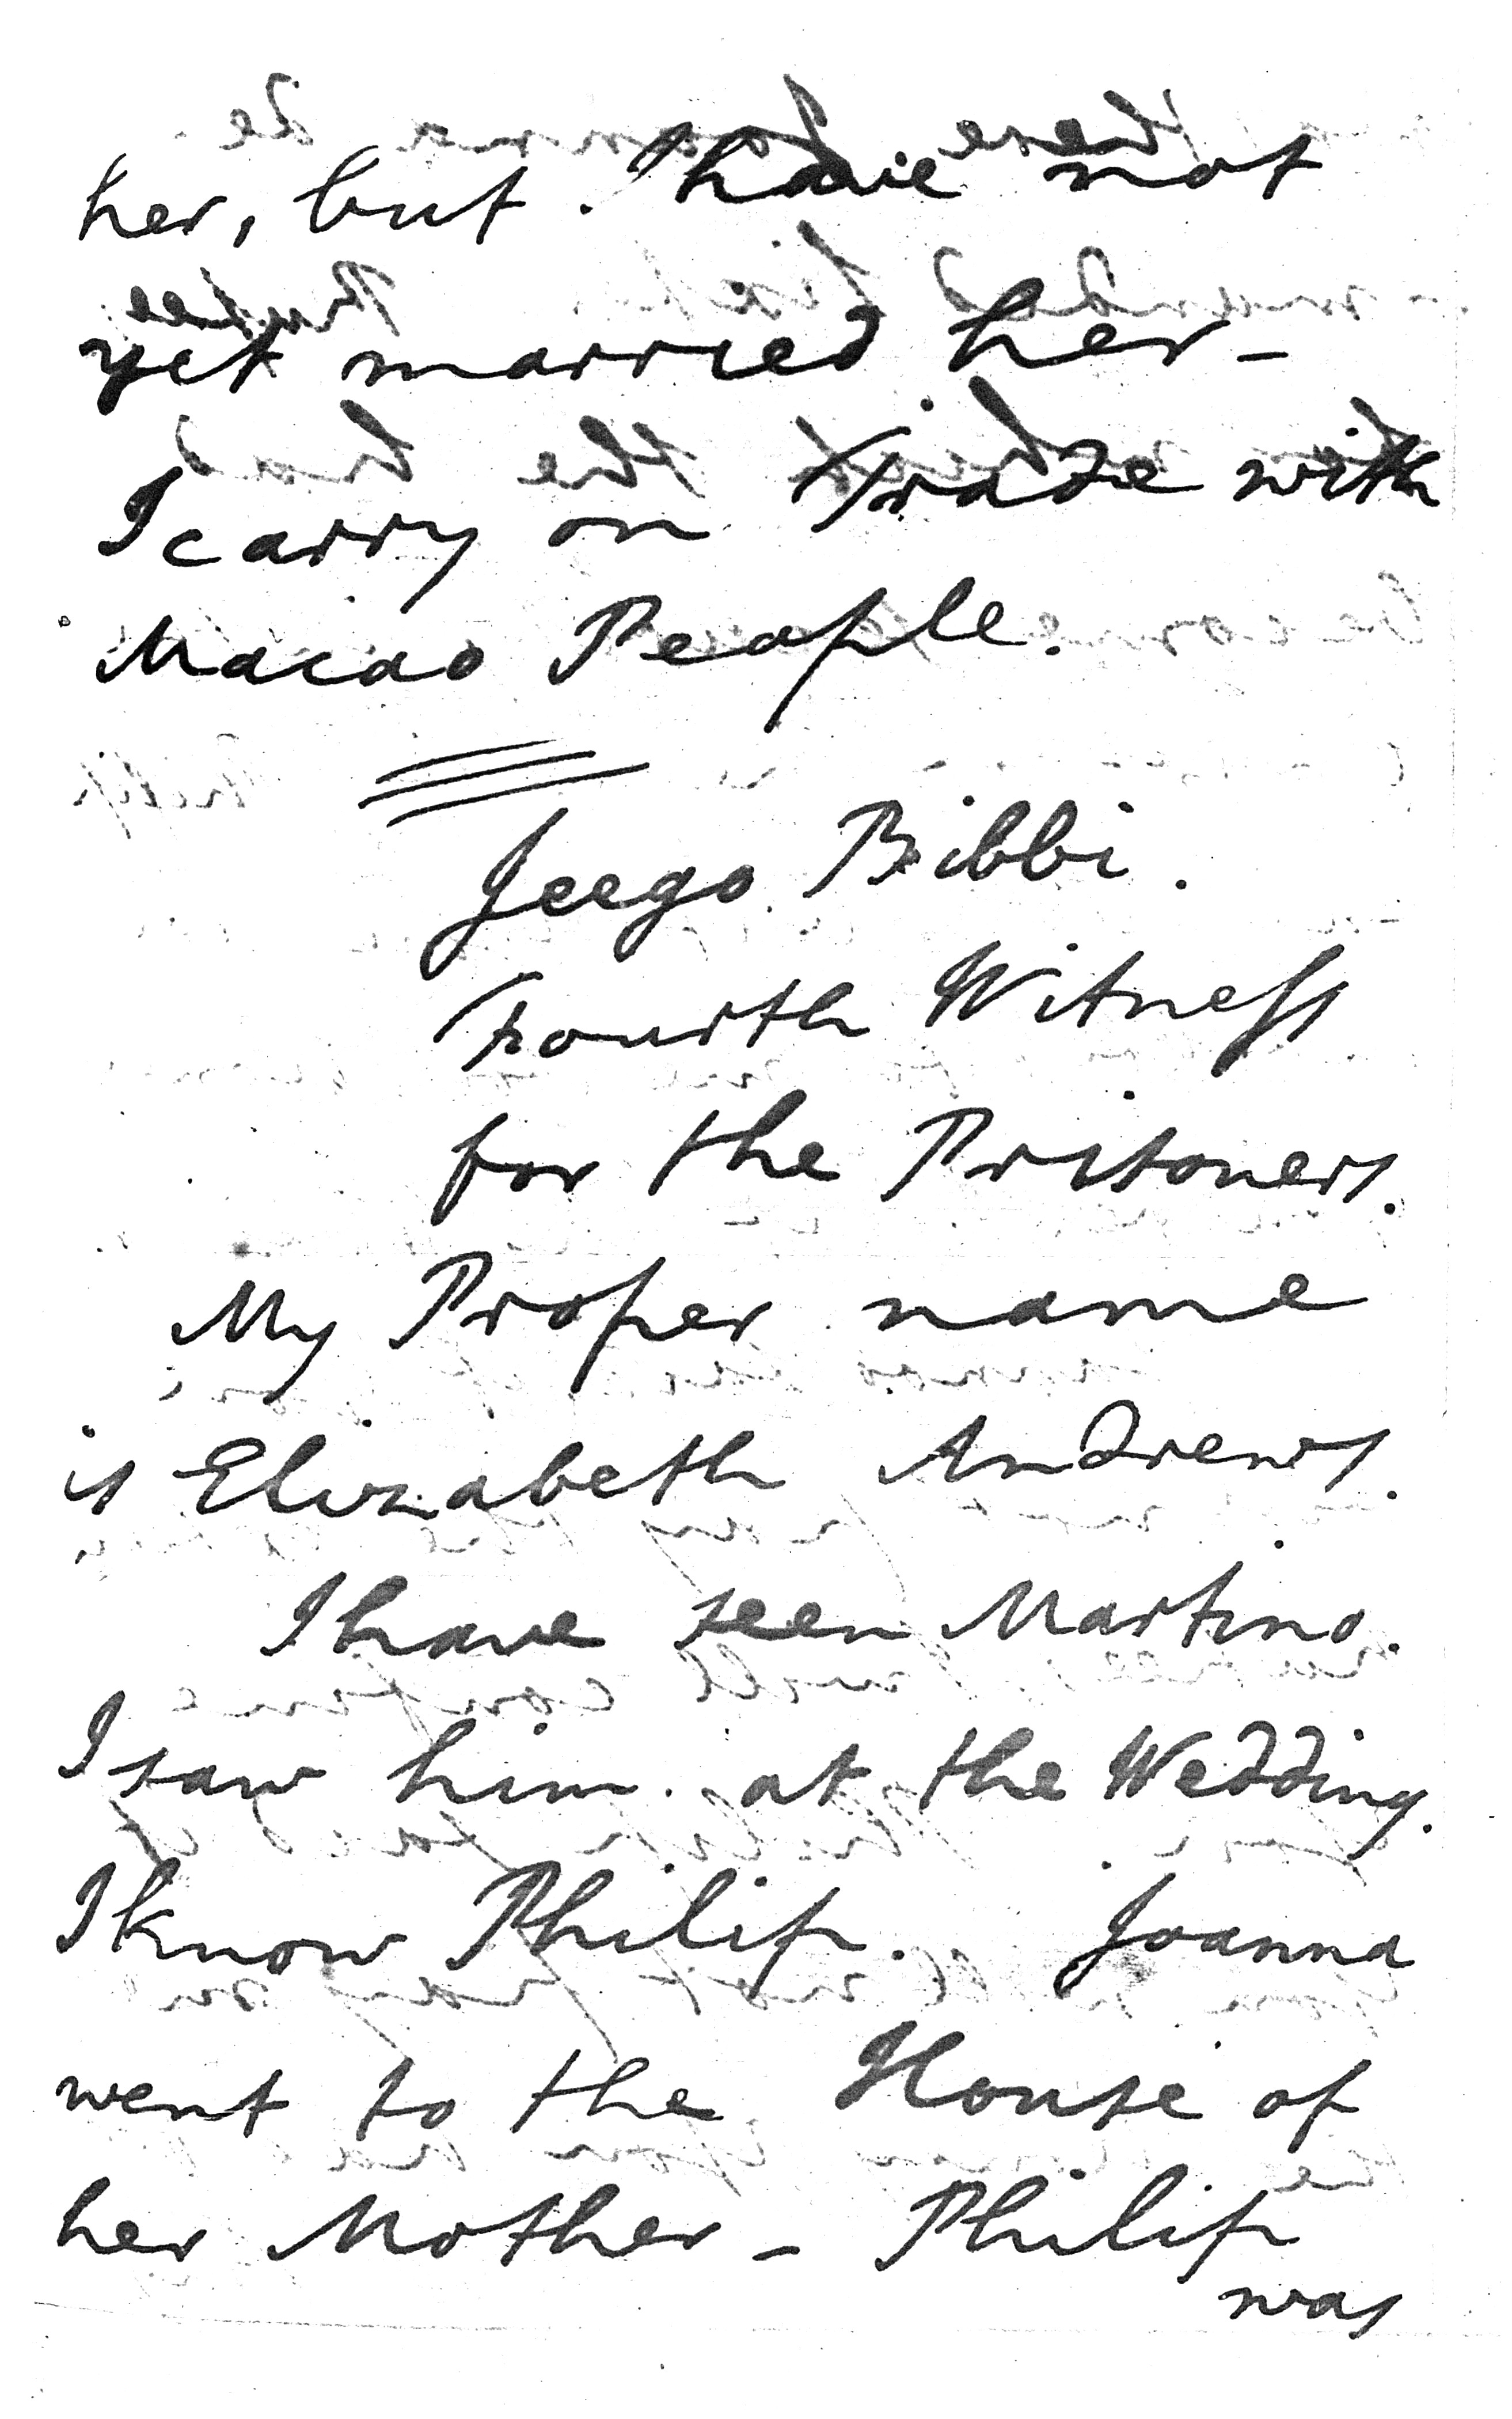 her, but I have not
yet married her -
I carry on Trade with
Macao People.
Jeego Bibbi.
Fourth Witness
for the Prisoners.
My Proper name
is Elizabeth Andrews.
I have seen Martino.
I saw him at the Wedding.
I know Philip. Joanna
went to the House of
her Mother - Philip
was